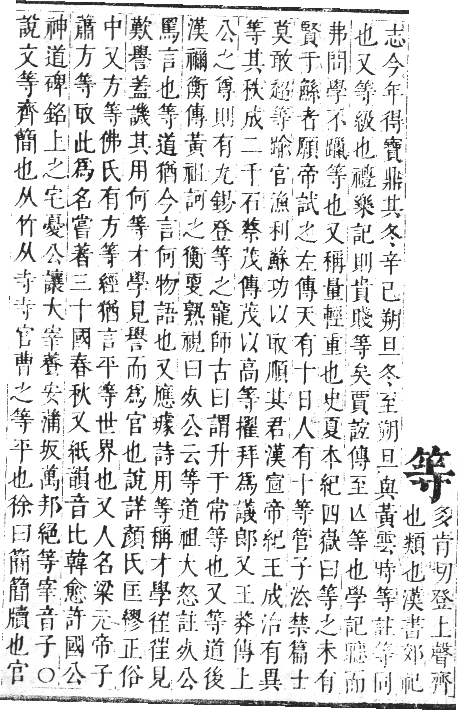 等
多肯切登上聲齊
也類也漢書郊祀
志今年得寶鼎其冬辛巳朔旦冬至朔旦與黃雲時等註等同
也又等級也禮樂記則貴賤等矣賈誼傳至亾等也學記聽而
弗問學不躐等也又稱量輕重也史夏本紀四嶽曰等之未有
賢于鯀者願帝試之左傳天有十日人有十等管子法禁篇士
莫敢超等踰官漁利蘇功以取順其君漢宣帝紀王成治有異
等其秩成二千石蔡茂傳茂以高等擢拜爲議郎又王莽傳上
公之尊則有九錫登等之寵師古曰謂升于常等也又等道後
漢禰衡傳黃祖訶之衡更熟視曰死公云等道祖大怒註死公
罵言也等道猶今言何物語也又應璩詩用等稱才學徃徃見
歎譽蓋譏其用何等才學見譽而爲官也說詳顏氏匡繆正俗
中又方等佛氏有方等經猶言平等世界也又人名梁元帝子
蕭方等取此爲名嘗著三十國春秋又紙韻音比韓愈許國公
神道碑銘上之宅憂公讓大宰養安蒲坂萬邦絕等宰音子○
說文等齊簡也从竹从寺寺官曹之等平也徐曰簡簡牘也官